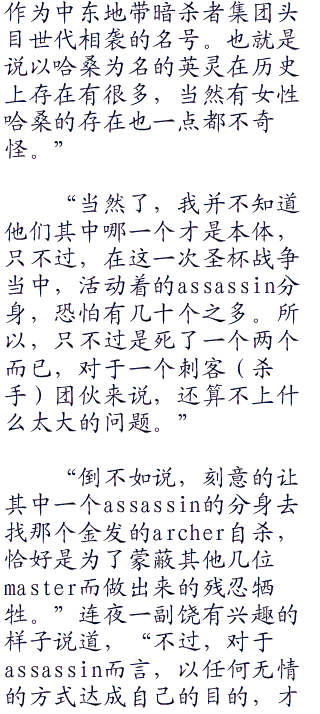 作为中东地带暗杀者集团头
目世代相袭的名号。也就是
说以哈桑为名的英灵在历史
上存在有很多，当然有女性
哈桑的存在也一点都不奇
怪。”
“当然了，我并不知道
他们其中哪一个才是本体，
只不过，在这一次圣杯战争
当中，活动着的assassin分
身，恐怕有几十个之多。所
以，只不过是死了一个两个
而已，对于一个刺客（杀
手）团伙来说，还算不上什
么太大的问题。”
“倒不如说，刻意的让
其中一个assassin的分身去
找那个金发的archer自杀，
恰好是为了蒙蔽其他几位
master而做出来的残忍牺
牲。”连夜一副饶有兴趣的
样子说道，“不过，对于
assassin而言，以任何无情
的方式达成自己的目的，才